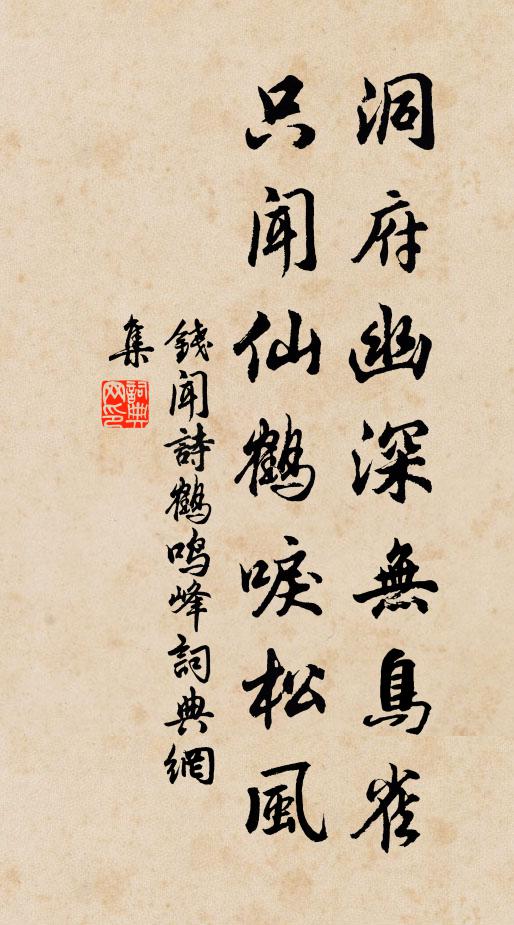 洞府幽深無鳥雀
只聞仙鶴唳松風
錢聞詩鶴鳴峰詞典網
集
詞典
网印